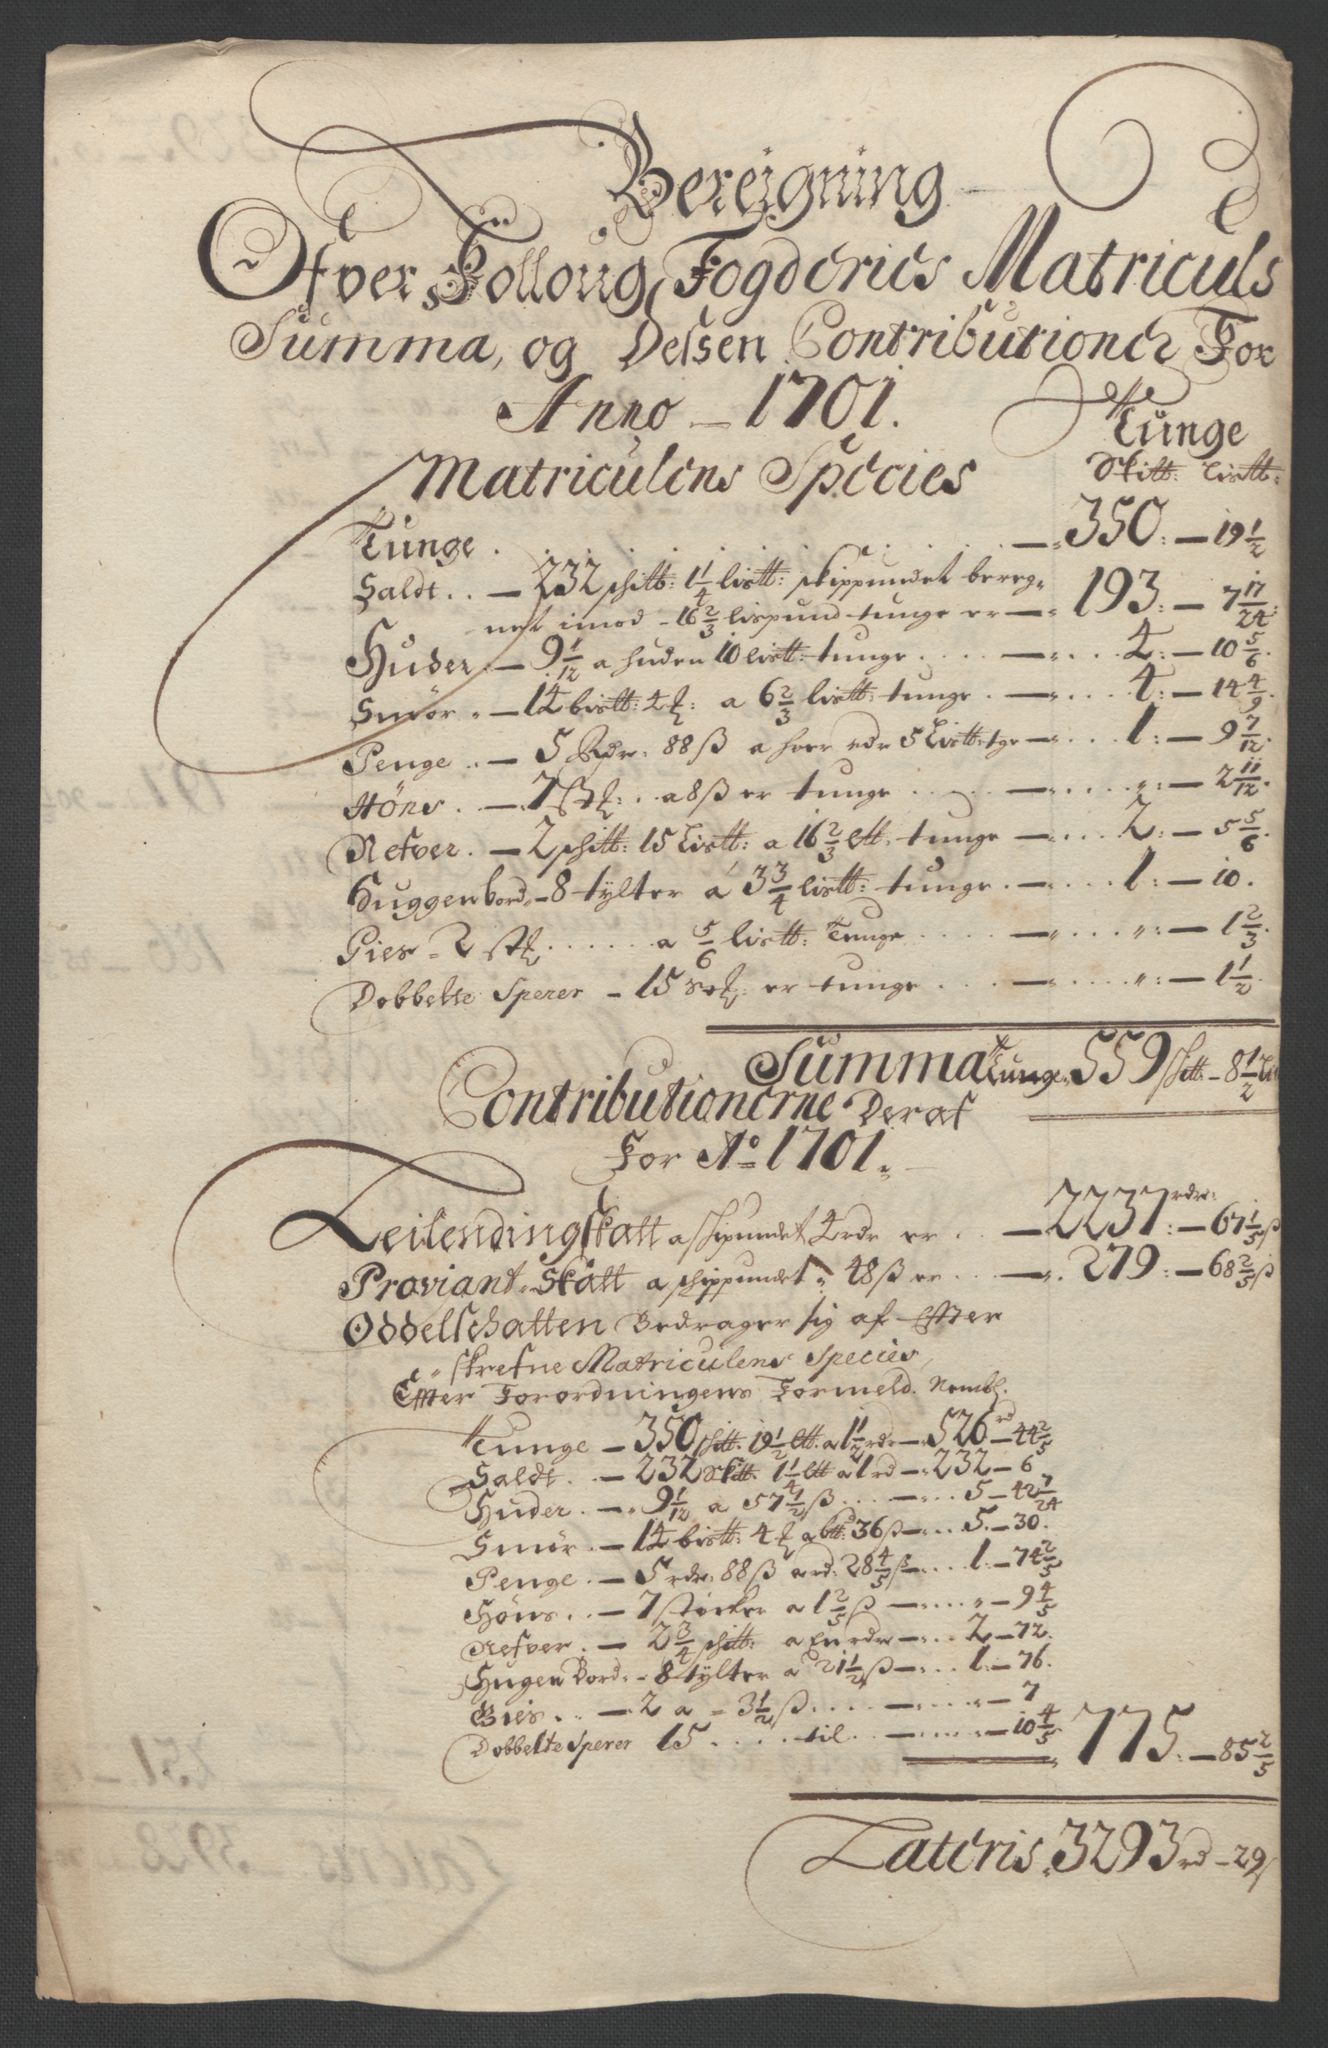 Bereigning
Ofver Folloug Fogderies Matriculs
Summa, og Dessen Contributioner For
Anno - 1701.
Tunge
Matriculens Species
Skitt: Listt:
Tunge . . . . . . . . - 350: - 19 1/2
Saldt. . - 232 schitt: 1 1/4 listt: skippundet bereg=
net imod - 16 2/3 lispund tunge er - 193: - 7 17/24:
Huder - 9 1/12 a huden 10 listt: tunge . . . . - . . . 4: - 10 5/6.
Smör - 14 bistt: 4 a 6 2/3 listt: tunge . - . . . 4: - 14 4/9.
Penge . . - 5 Rdr: 88 ß a hver rdr 5 Listt: tge - . . . 1: - 9 7/12.
Höns . . - 7 stk: . . a 8 ß er tunge . . . . - . . . . ": - 2 11/12.
Refver. - 2 schitt: 15 Listt: a 16 2/3 ltt: tunge - . . . 2: - 5 5/6.
Huggenbord - 8 tylter á 3 3/4 listt: tunge . - . . . 1: - 10.
Gies - 2 stk . . . . . a 5/6 listt: Tunge . . . . - . . . . ": - 1 2/3.
Dobbelte Sperer - 15 stk: er tunge . . . . - . . . . ": - 1 1/2.
Summa Tunge 559 schitt - 8 1/2
Contributionerne Deraf
For Ao 1701.
Leilendingskatt a schipundet 4 rdr er . . - 2237 rdr: - 67 1/5 ß
Proviant Skatt a schippundet 48 ß er . . . - . 279: - 68 2/5 ß
Oddelschatten Bedrager sig af Effter
skrefne Matriculens Species,
Effter Forordningens Formeld. Nembl.
Tunge - 350 schitt. 19 1/2 ltt. a 1 1/2 rdr - 526 rd - 44 2/5
Saldt. . - 232 Skitt. 1 1/4 ltt a 1 rd - 232 - 6
Huder. - 9 1/12 a 57 1/2 ß . . . - . . 5 - 42 7/24
Smör. - 14 bistt: 4 a btt: 36 ß - . . 5. - 30.
Penge. - 5 rdr: 88 ß a rd: 28 4/5 ß - . . 1. - 74 2/5
Höns. . - 7 stöcker a 1 2/5 ß - . . . " - 9 4/5
Refver. - 2 3/4 schitt: a En rdr - . . 2 - 72.
Hugen Bord - 8 tylter a 21 1/2 ß - . . 1. - 76.
Gies. . - 2 a = 3 1/2 ß . . . . - . . . " - 7
Dobbelte Sperer 15 . . . . til . . - . . . " - 10 4/5 775: - 85 2/5
Lateris. 3293 rd - 29